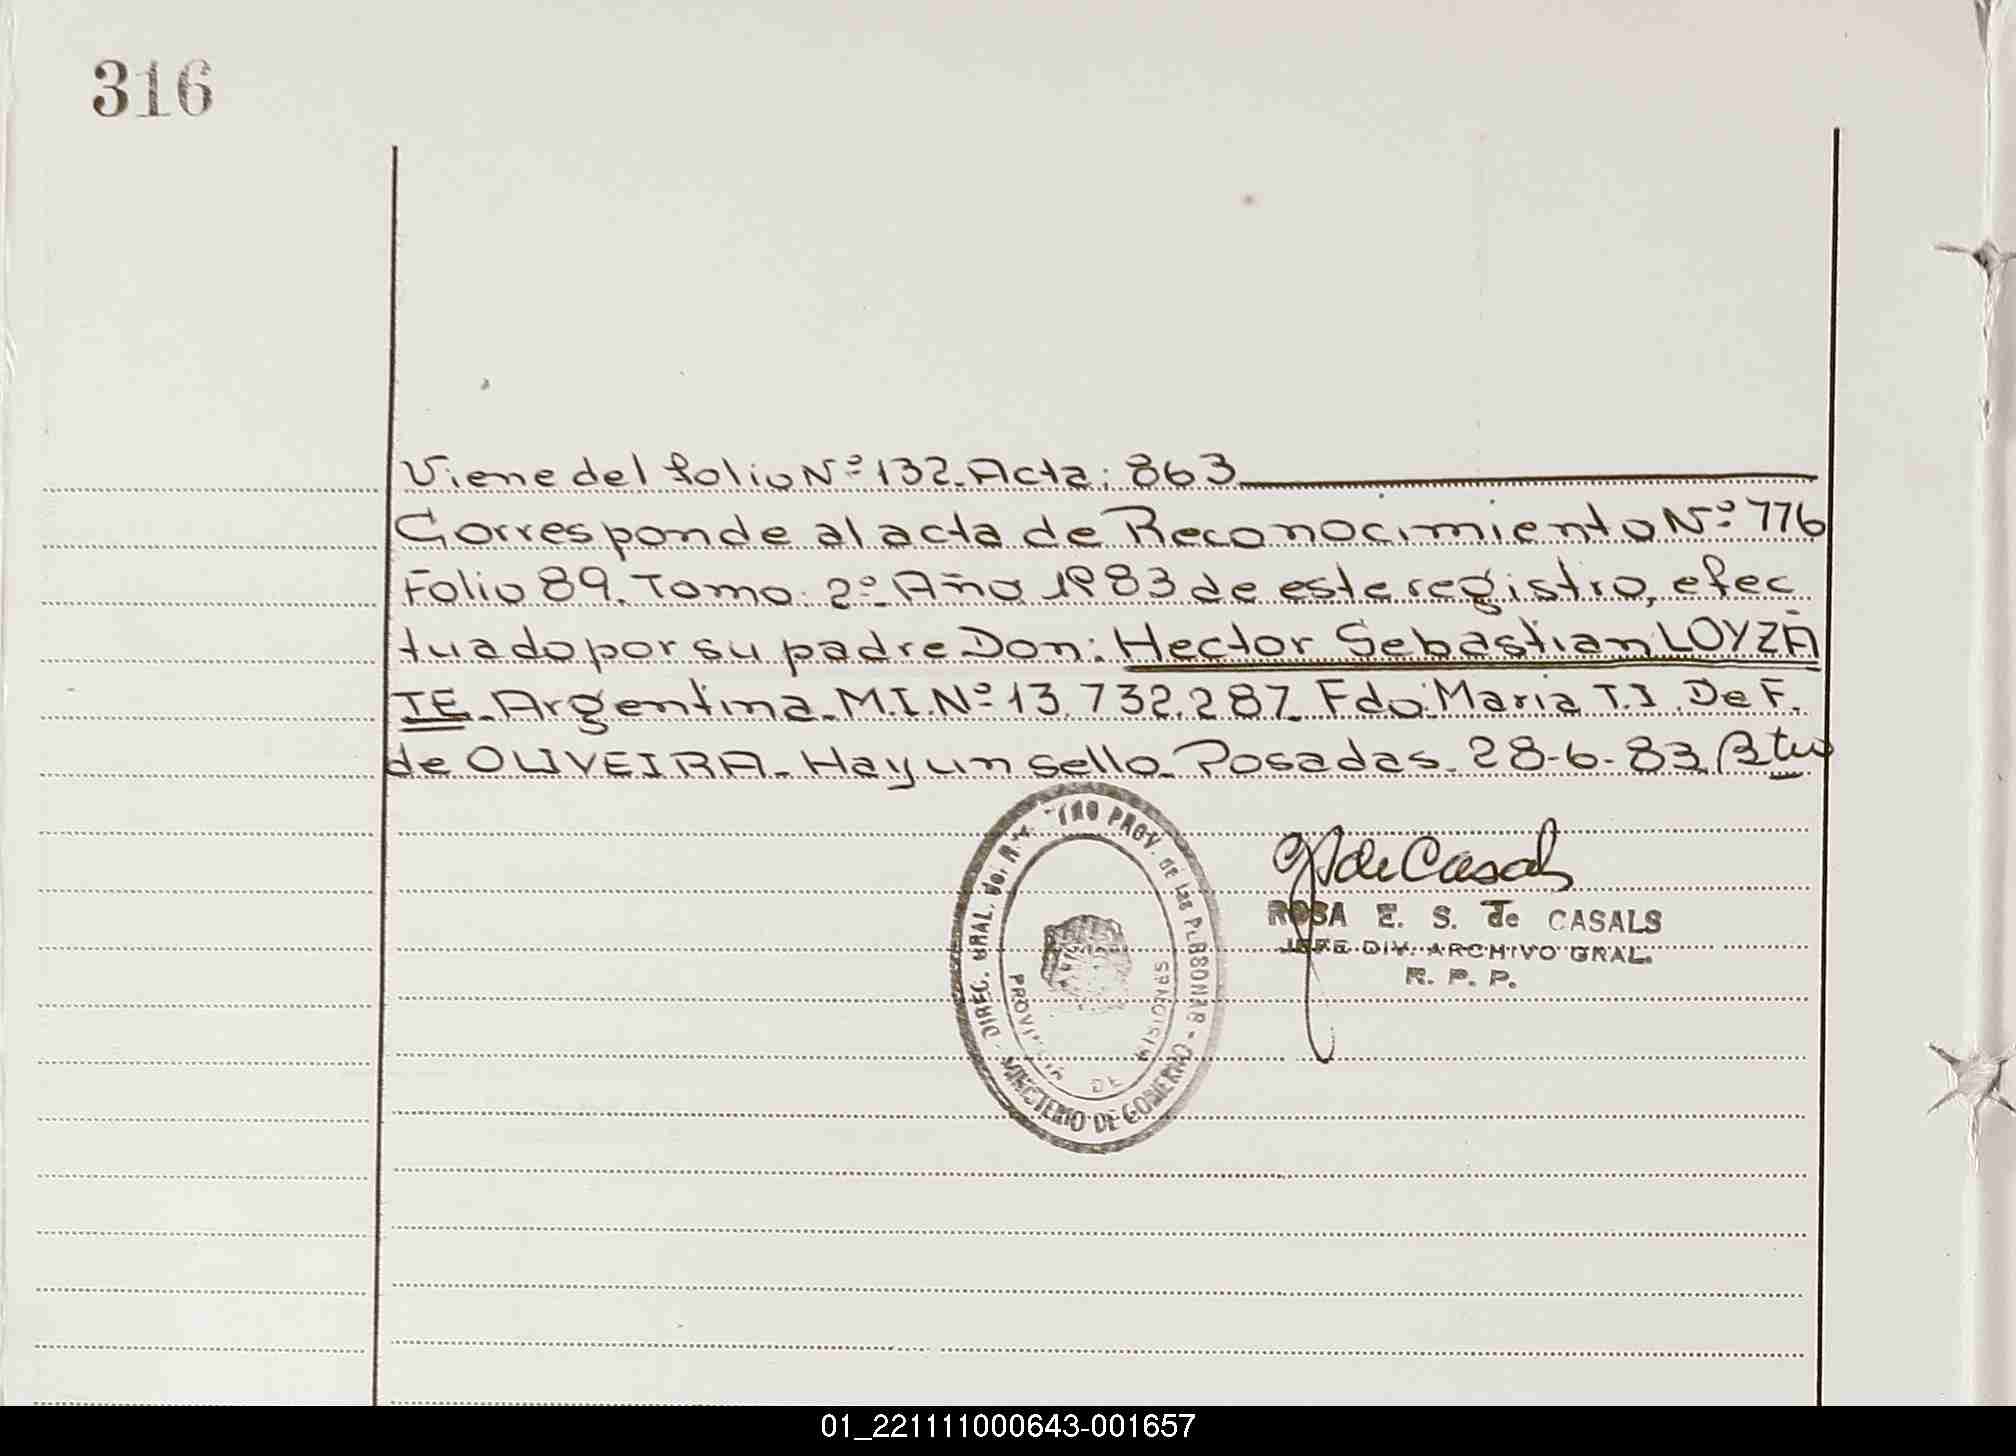 316
Viene del folio Nº 132. Acta: 863
Corresponde al acta de Reconocimiento Nº: 776
Folio 89. Tomo: 2º Año 1983 de este registro, efec
tuado por su padre Don: Hector Sebastian LOYZA
TE. Argentina. M.I. Nº 13.732.287. Fdo: Maria T.I. De F.
de OLIVEIRA. Hay un sello. Posadas. 28-6-83
DIREC. GRAL. PROV. de las PERSONAS - MINISTERIO DE GOBIERNO -
PROVINCIA DE MISIONES
de Casals
ROSA E. S. de CASALS
JEFE DIV. ARCHIVO GRAL.
R. P. P.
01_221111000643-001657